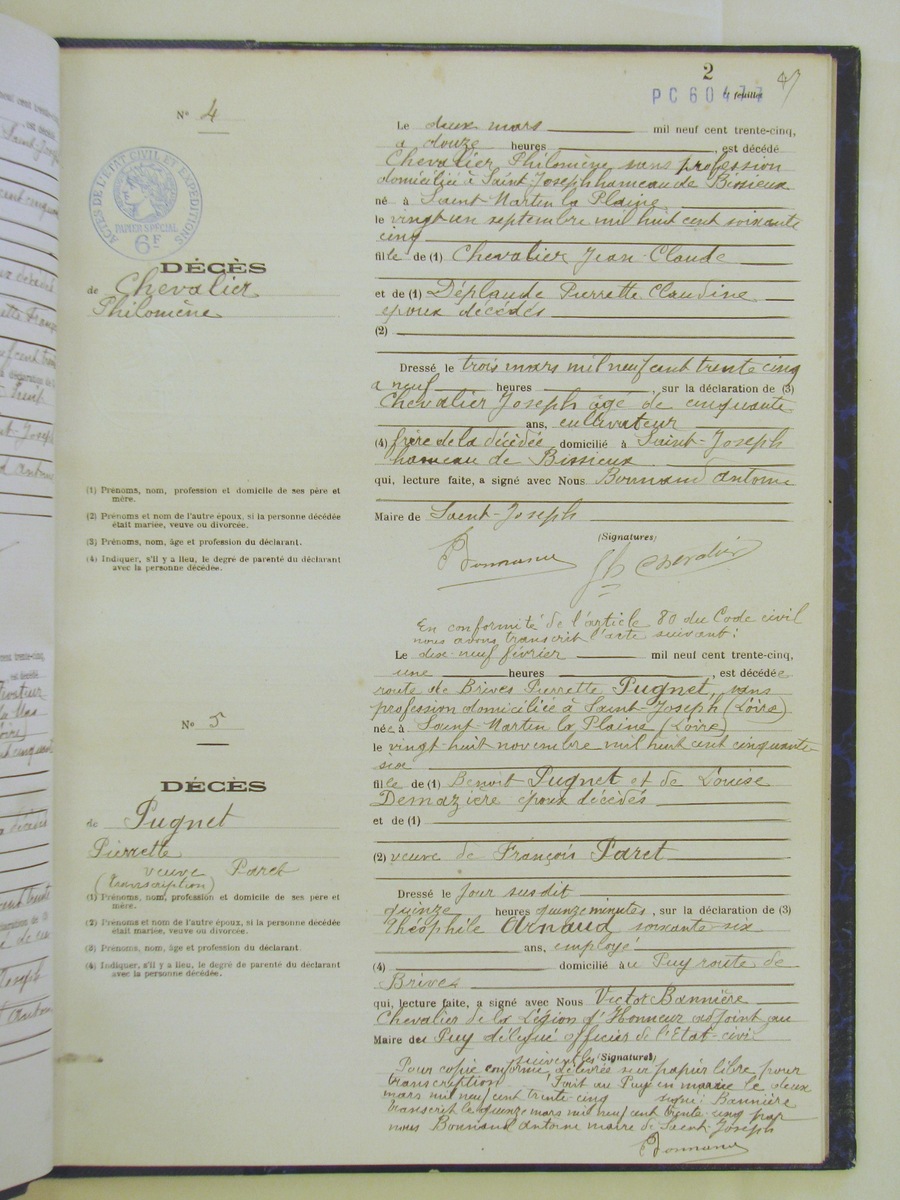 2
PC 60477
feuillet
47
N° 4
Le deux mars mil neuf cent trente-cinq,
à douze heures , est décédé
Chevalier Philomène sans profession
domiciliée à Saint-Joseph hameau de Bissieux
né à Saint Martin la Plaine
le vingt un septembre mil huit cent soixante
cinq
fille de (1) Chevalier Jean-Claude
et de (1) Déplaude Pierrette Claudine
époux décédés
(2)
ACTES DE L'ÉTAT CIVIL ET EXPÉDITIONS
PAPIER SPÉCIAL
6F
DÉCÈS
de Chevalier
Philomène
Dressé le trois mars mil neuf cent trente cinq
à neuf heures , sur la déclaration de (3)
Chevalier Joseph âgé de cinquante
ans, cultivateur
(4) frère de la décédée domicilié à Saint-Joseph
hameau de Bissieux
qui, lecture faite, a signé avec Nous Bonnand Antoine
Maire de Saint-Joseph
(Signatures)
Bonnand Chevalier
(1) Prénoms, nom, profession et domicile de ses père et
mère.
(2) Prénoms et nom de l'autre époux, si la personne décédée
était mariée, veuve ou divorcée.
(3) Prénoms, nom, âge et profession du déclarant.
(4) Indiquer, s'il y a lieu, le degré de parenté du déclarant
avec la personne décédée.
En conformité de l'article 80 du Code civil
nous avons transcrit l'acte suivant :
Le dix-neuf février mil neuf cent trente-cinq,
une heures , est décédée
route de Brives Pierrette Pugnet, sans
profession domiciliée à Saint Joseph (Loire)
née à Saint Martin la Plaine (Loire)
le vingt-huit novembre mil huit cent cinquante
six
fille de (1) Benoit Pugnet et de Louise
Demazière époux décédés
et de (1)
(2) veuve de François Paret
N° 5
DÉCÈS
de Pugnet
Pierrette
veuve Paret
(transcription)
(1) Prénoms, nom, profession et domicile de ses père et
mère.
(2) Prénoms et nom de l'autre époux, si la personne décédée
était mariée, veuve ou divorcée.
(3) Prénoms, nom, âge et profession du déclarant.
(4) Indiquer, s'il y a lieu, le degré de parenté du déclarant
avec la personne décédée.
Dressé le jour susdit
quinze heures quinze minutes , sur la déclaration de (3)
Théophile Arnaud soixante-six
ans, employé
(4) domicilié au Puy route de
Brives
qui, lecture faite, a signé avec Nous Victor Bannière
Chevalier de la Légion d'Honneur adjoint au
Maire du Puy délégué officier de l'Etat-civil
suivent les (Signatures)
Pour copie conforme délivrée sur papier libre pour
transcription Fait au Puy en mairie le deux
mars mil neuf cent trente-cinq signé : Bannière
transcrit le quinze mars mil neuf cent trente-cinq par
nous Bonnand Antoine maire de Saint-Joseph
Bonnand